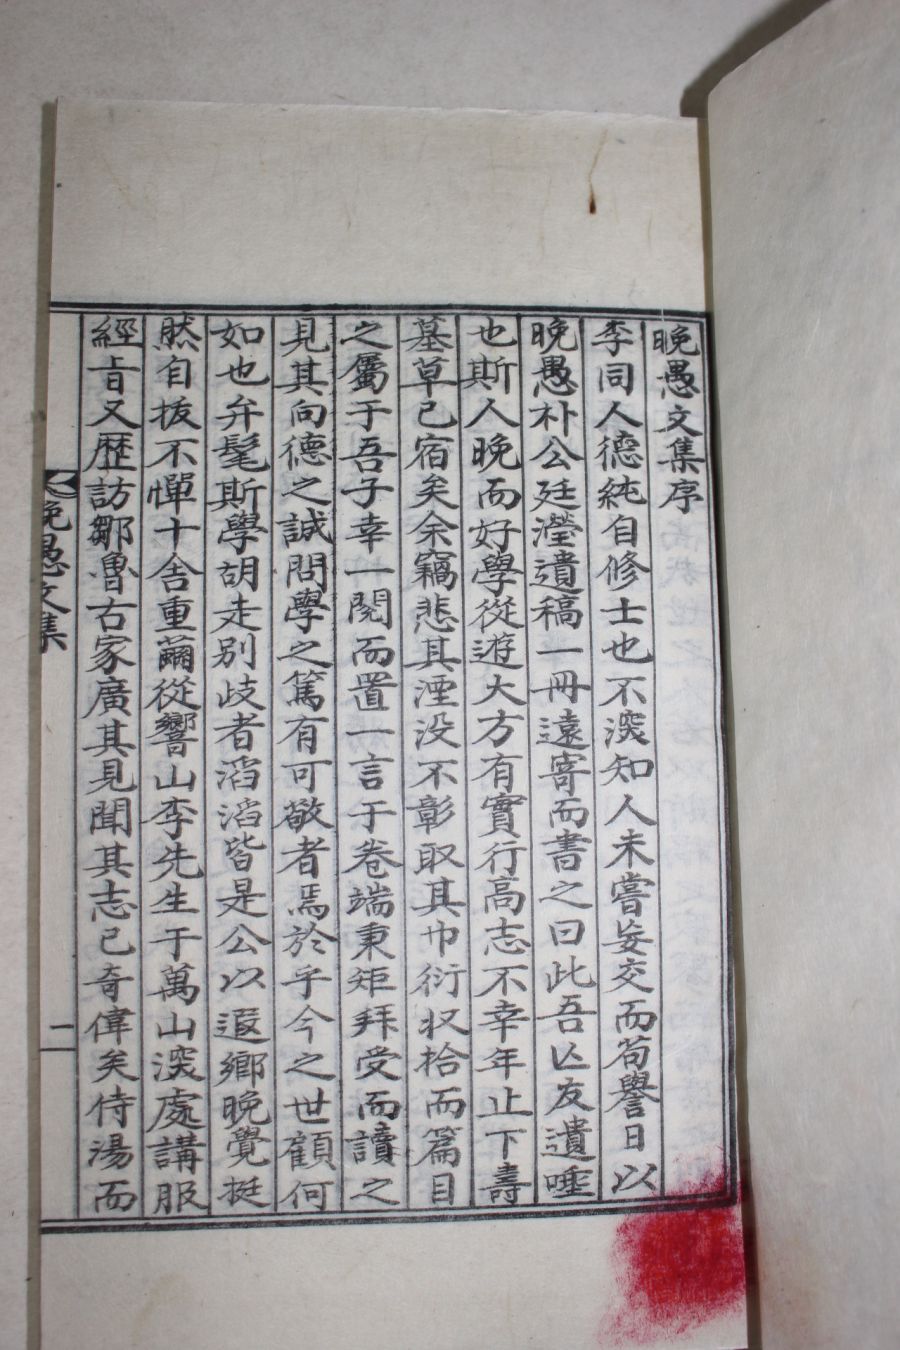 晚愚文集序
李同人德純自修士也不深知人未嘗妄交而苟譽日以
晚愚朴公廷瀅遺稿一冊遠寄而書之曰此吾亡友遺唾
也斯人晚而好學從遊大方有實行高志不幸年止下壽
墓草已宿矣余竊悲其湮没不彰取其巾衍収拾而篇目
之屬于吾子幸一閱而置一言于卷端秉矩拜受而讀之
見其向德之誠問學之篤有可敬者焉於乎今之世顧何
如也弁髦斯學胡走别歧者滔滔皆是公以遐鄉晚覺挺
然自拔不憚十舍重繭從響山李先生于萬山深處講服
經旨又歷訪鄒魯古家廣其見聞其志已奇偉矣侍湯而
晚愚文集
一